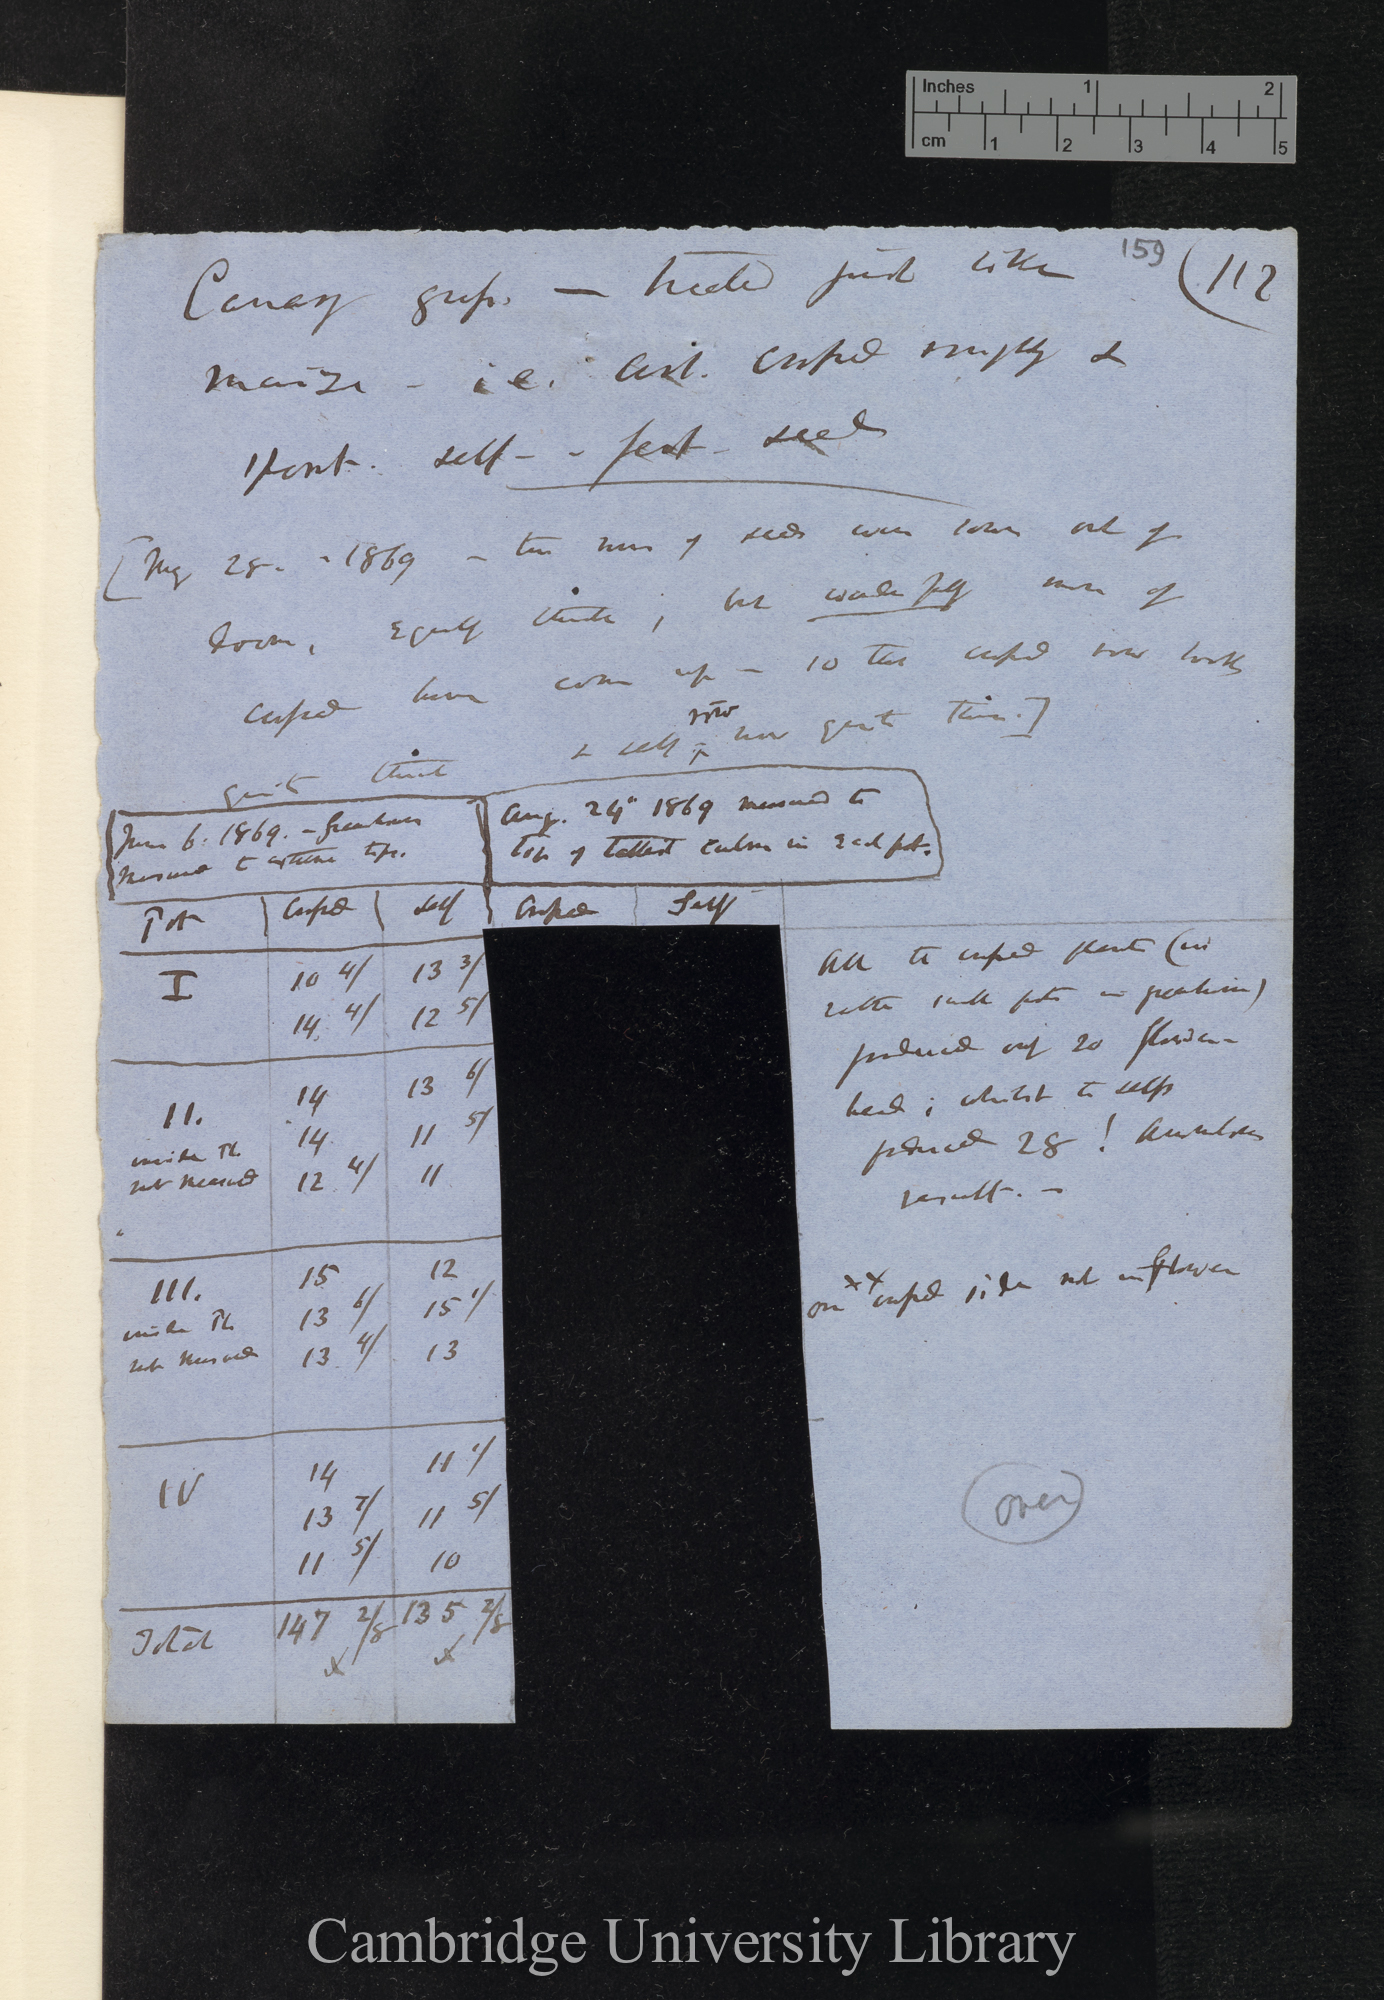 Inches 1 2
cm 1 2 3 4 5
159 (112
Canary grass. — treated just like
maize - i.e. art. crossed simply &
spont. self - fert. seed
[May 28. - 1869 - two rows of seeds were sown out of
doors, equally thick; but wonderfully more of
crossed have come up — so that crossed row looks
quite thick & self row now quite thin.]
June 6. 1869. - Greenhouse
Measured to extreme tips.
Aug. 24th 1869 measured to
tips of tallest culm in each pot.
Pot Crossed Self Crossed Self
I 10 4/ 13 3/
14 4/ 12 5/
II. 14 13 6/
inside Pl. 14 11 5/
not measured 12 4/ 11
III. 15 12
inside Pl. 13 6/ 15 1/
not measured 13 4/ 13
IV 14 11 1/
13 7/ 11 5/
11 5/ 10
Total 147 2/8 135 2/8
x x
All the crossed plants (in
rather small pots in greenhouse)
produced only 20 flower-
heads; whilst the selfs
produced 28! Anomalous
result. —
one xx crossed side not in flower
over
Cambridge University Library